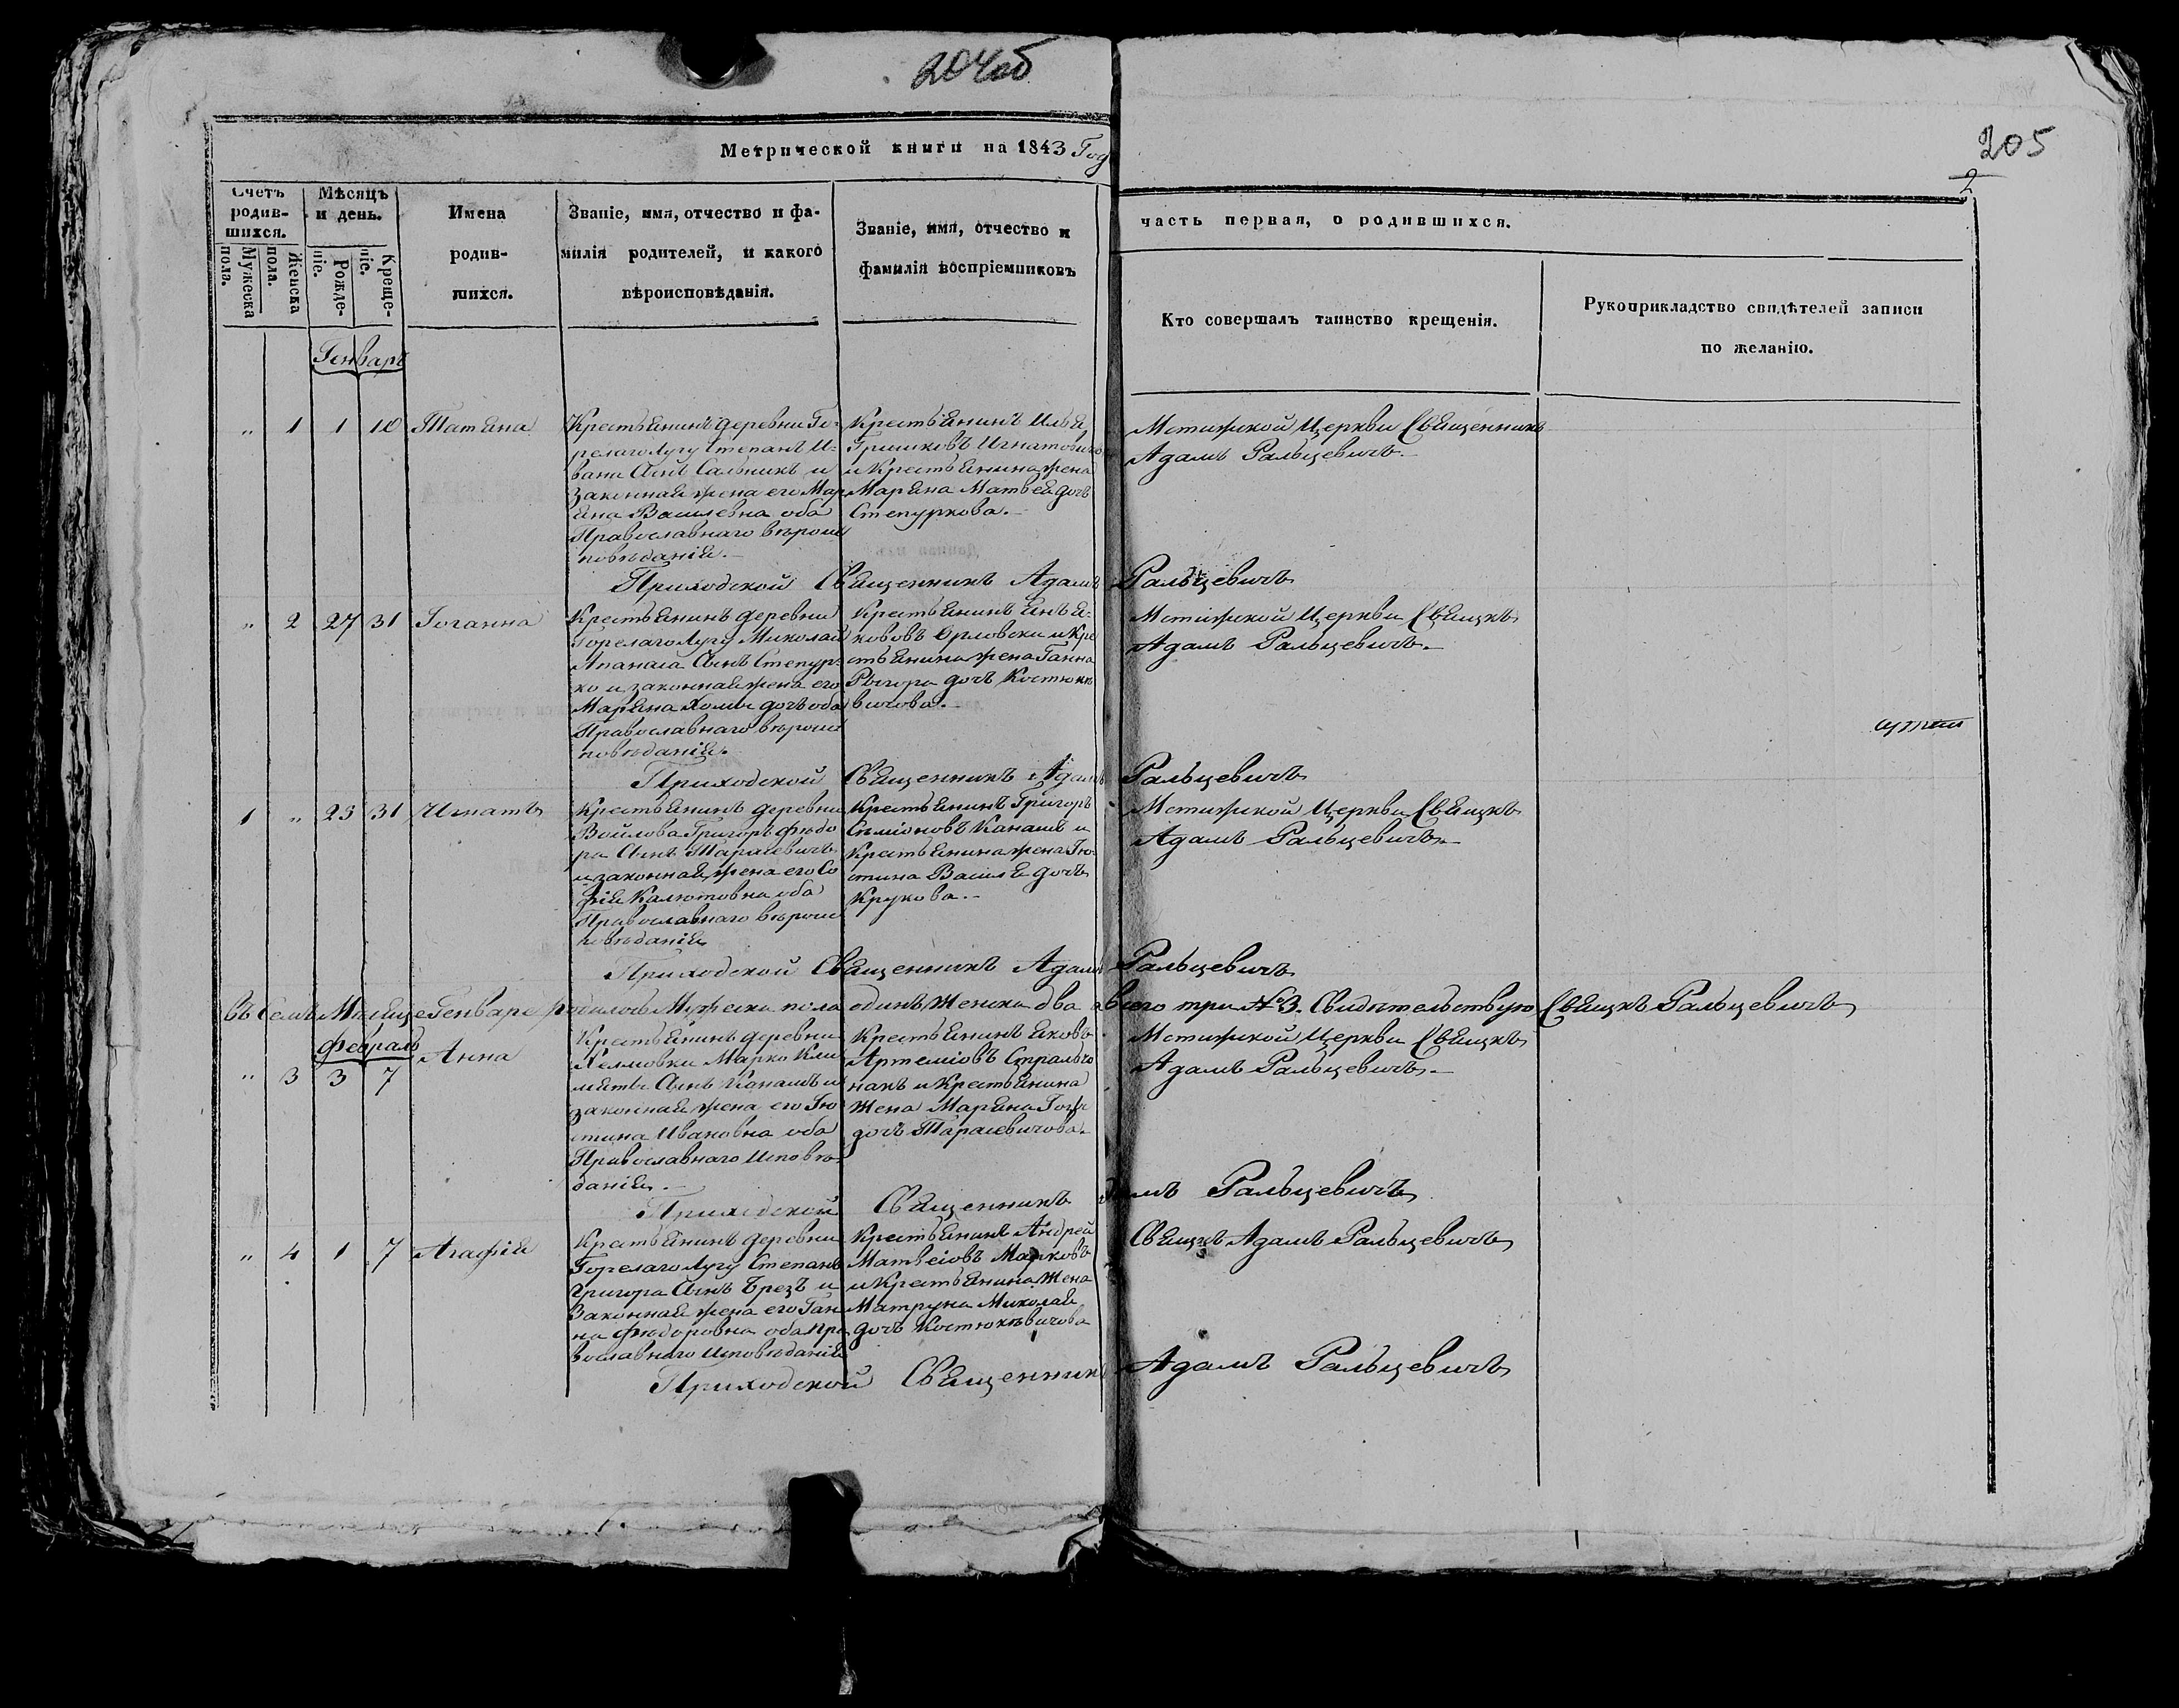 204об
205
2
Метрической книги на 1843 Год
часть первая, о родившихся.
Счетъ родив-шихся.
Мужеска пола.
Женска пола.
Мѣсяцъ и день.
Рожде-ніе.
Креще-ніе.
Имена
родив-
шихся.
Званіе, имя, отчество и фа-
милія родителей, и какого
вѣроисповѣданія.
Званіе, имя, отчество и
фамилія воспріемниковъ
Кто совершалъ таинство крещенія.
Рукоприкладство свидѣтелей записи
по желанію.
Генварь
„ 1 1 10 Татяна
Крестьянинъ деревни Го-
релаго Лугу Степанъ И-
вана Сынъ Сальникъ и
законная жена его Мар
яна Василевна оба
Православнаго вѣроис
повѣданія.
Крестьянинъ Илья
Гришковъ Игнатовичь
и Крестьянина жена
Марьяна Матвея дочь
Степуркова.
Мстижской Церкви Священникъ
Адамъ Ральцевичъ
Приходской Священникъ Адамъ Ральцевичъ
„ 2 27 31 Іоганна
Крестьянинъ деревни
Горелаго Лугу Миколай
Апанаса Сынъ Степур-
ко и законная жена его
Марьяна Хомы дочь оба
Православнаго вѣроис
повѣданія.
Крестьянинъ Янъ Я-
кововъ Орловски и Кре
стьянина жена Ганна
Рыгора дочь Костюкѣ
вичова.
Мстижской Церкви Свящкъ
Адамъ Ральцевичъ
Приходской Священникъ Адамъ Ральцевичъ
1 „ 23 31 Игнатъ
Крестьянинъ деревни
Войлова Григоръ Ѳедо
ра Сынъ Тарасевичъ
и законная жена его Со
фія Калютовна оба
Православнаго вѣроис
повѣданія
Крестьянинъ Григоръ
Семіоновъ Канашъ и
Крестьянина жена Ію-
стина Василя дочь
Крукова.
Мстижской Церкви Свящкъ
Адамъ Ральцевичъ
Приходской Священникъ Адамъ Ральцевичъ
Въ семъ Месяце Генваре родилось Мужеска пола одинъ, Женска два а всего три №3. Свидѣтельствую Свящкъ Ральцевичъ
Февраль
„ 3 3 7 Анна
Крестьянинъ деревни
Марко Кли
мяты Сынъ Канашъ и
законная жена его Ію
стина Ивановна оба
Православнаго Исповѣ-
данія.
Крестьянинъ Яковъ
Артеміовъ
и Крестьянина
Жена Марьяна
дочь Тарасевичова.
Мстижской Церкви Свящкъ
Адамъ Ральцевичъ
Приходской Священникъ Адамъ Ральцевичъ
„ 4 1 7 Агафія
Крестьянинъ деревни
Горелаго Лугу Степанъ
Григора Сынъ Брезъ и
Законная жена его Ган
на Ѳедоровна оба Пра
вославнаго Исповѣданія
Крестьянинъ Андрей
Матвеіовъ Марковъ
и Крестьянина Жена
Матруна Миколая
дочь Костюкѣвичова
Свящкъ Адамъ Ральцевичъ
Приходской Священникъ Адамъ Ральцевичъ